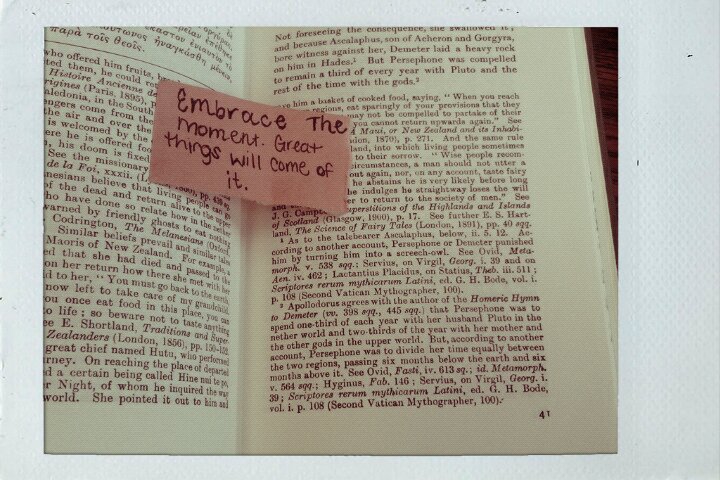 παρὰ τοῖς θεοῖς.
who offered him fruits,
ted them, he could
Histoire Ancienne de
rigines (Paris, 1895), p.
aledonia, in the South
engers come from the
the air and over the
is welcomed by the
ere he is offered foo
, his doom is fixed
See the missionary
de la Foi, xxxii. (L
nesians believe that living people can go
of the dead and return alive to the upper
ho have done so relate how in the nether
warned by friendly ghosts to eat nothing
Codrington, The Melanesians (Oxford,
Similar beliefs prevail and similar tales
Maoris of New Zealand. For example, a
ed that she had died and passed to the
on her return how there she met with her
id to her, “You must go back to the earth,
now left to take care of my grandchild.
ou once eat food in this place, you can
to life; so beware not to taste anything
ee E. Shortland, Traditions and Super-
Zealanders (London, 1856), pp. 150-152.
great chief named Hutu, who performed
rney. On reaching the place of departed
d a certain being called Hine nui te po,
r Night, of whom he inquired the way
world. She pointed it out to him and
Embrace The
moment. Great
things will come of
it.
Not foreseeing the consequence, she swallowed it;
and because Ascalaphus, son of Acheron and Gorgyra,
bore witness against her, Demeter laid a heavy rock
on him in Hades.¹ But Persephone was compelled
to remain a third of every year with Pluto and the
rest of the time with the gods.²
ve him a basket of cooked food, saying, “When you reach
regions, eat sparingly of your provisions that they
may not be compelled to partake of their
you cannot return upwards again.” See
Maui, or New Zealand and its Inhabi-
ondon, 1870), p. 271. And the same rule
land, into which living people sometimes
to their sorrow. “Wise people recom-
circumstances, a man should not utter a
out again, nor, on any account, taste fairy
he abstains he is very likely before long
he indulges he straightway loses the will
er to return to the society of men.” See
J. G. Campb Superstitions of the Highlands and Islands
of Scotland (Glasgow, 1900), p. 17. See further E. S. Hart-
land, The Science of Fairy Tales (London, 1891), pp. 40 sqq.
¹ As to the talebearer Ascalaphus, below, ii. 5. 12. Ac-
cording to another account, Persephone or Demeter punished
him by turning him into a screech-owl. See Ovid, Meta-
morph. v. 538 sqq.; Servius, on Virgil, Georg. i. 39 and on
Aen. iv. 462; Lactantius Placidus, on Statius, Theb. iii. 511;
Scriptores rerum mythicarum Latini, ed. G. H. Bode, vol. i.
p. 108 (Second Vatican Mythographer, 100).
² Apollodorus agrees with the author of the Homeric Hymn
to Demeter (vv. 398 sqq., 445 sqq.) that Persephone was to
spend one-third of each year with her husband Pluto in the
nether world and two-thirds of the year with her mother and
the other gods in the upper world. But, according to another
account, Persephone was to divide her time equally between
the two regions, passing six months below the earth and six
months above it. See Ovid, Fasti, iv. 613 sq.; id. Metamorph.
v. 564 sqq.; Hyginus, Fab. 146; Servius, on Virgil, Georg. i.
39; Scriptores rerum mythicarum Latini, ed. G. H. Bode,
vol. i. p. 108 (Second Vatican Mythographer, 100).
41